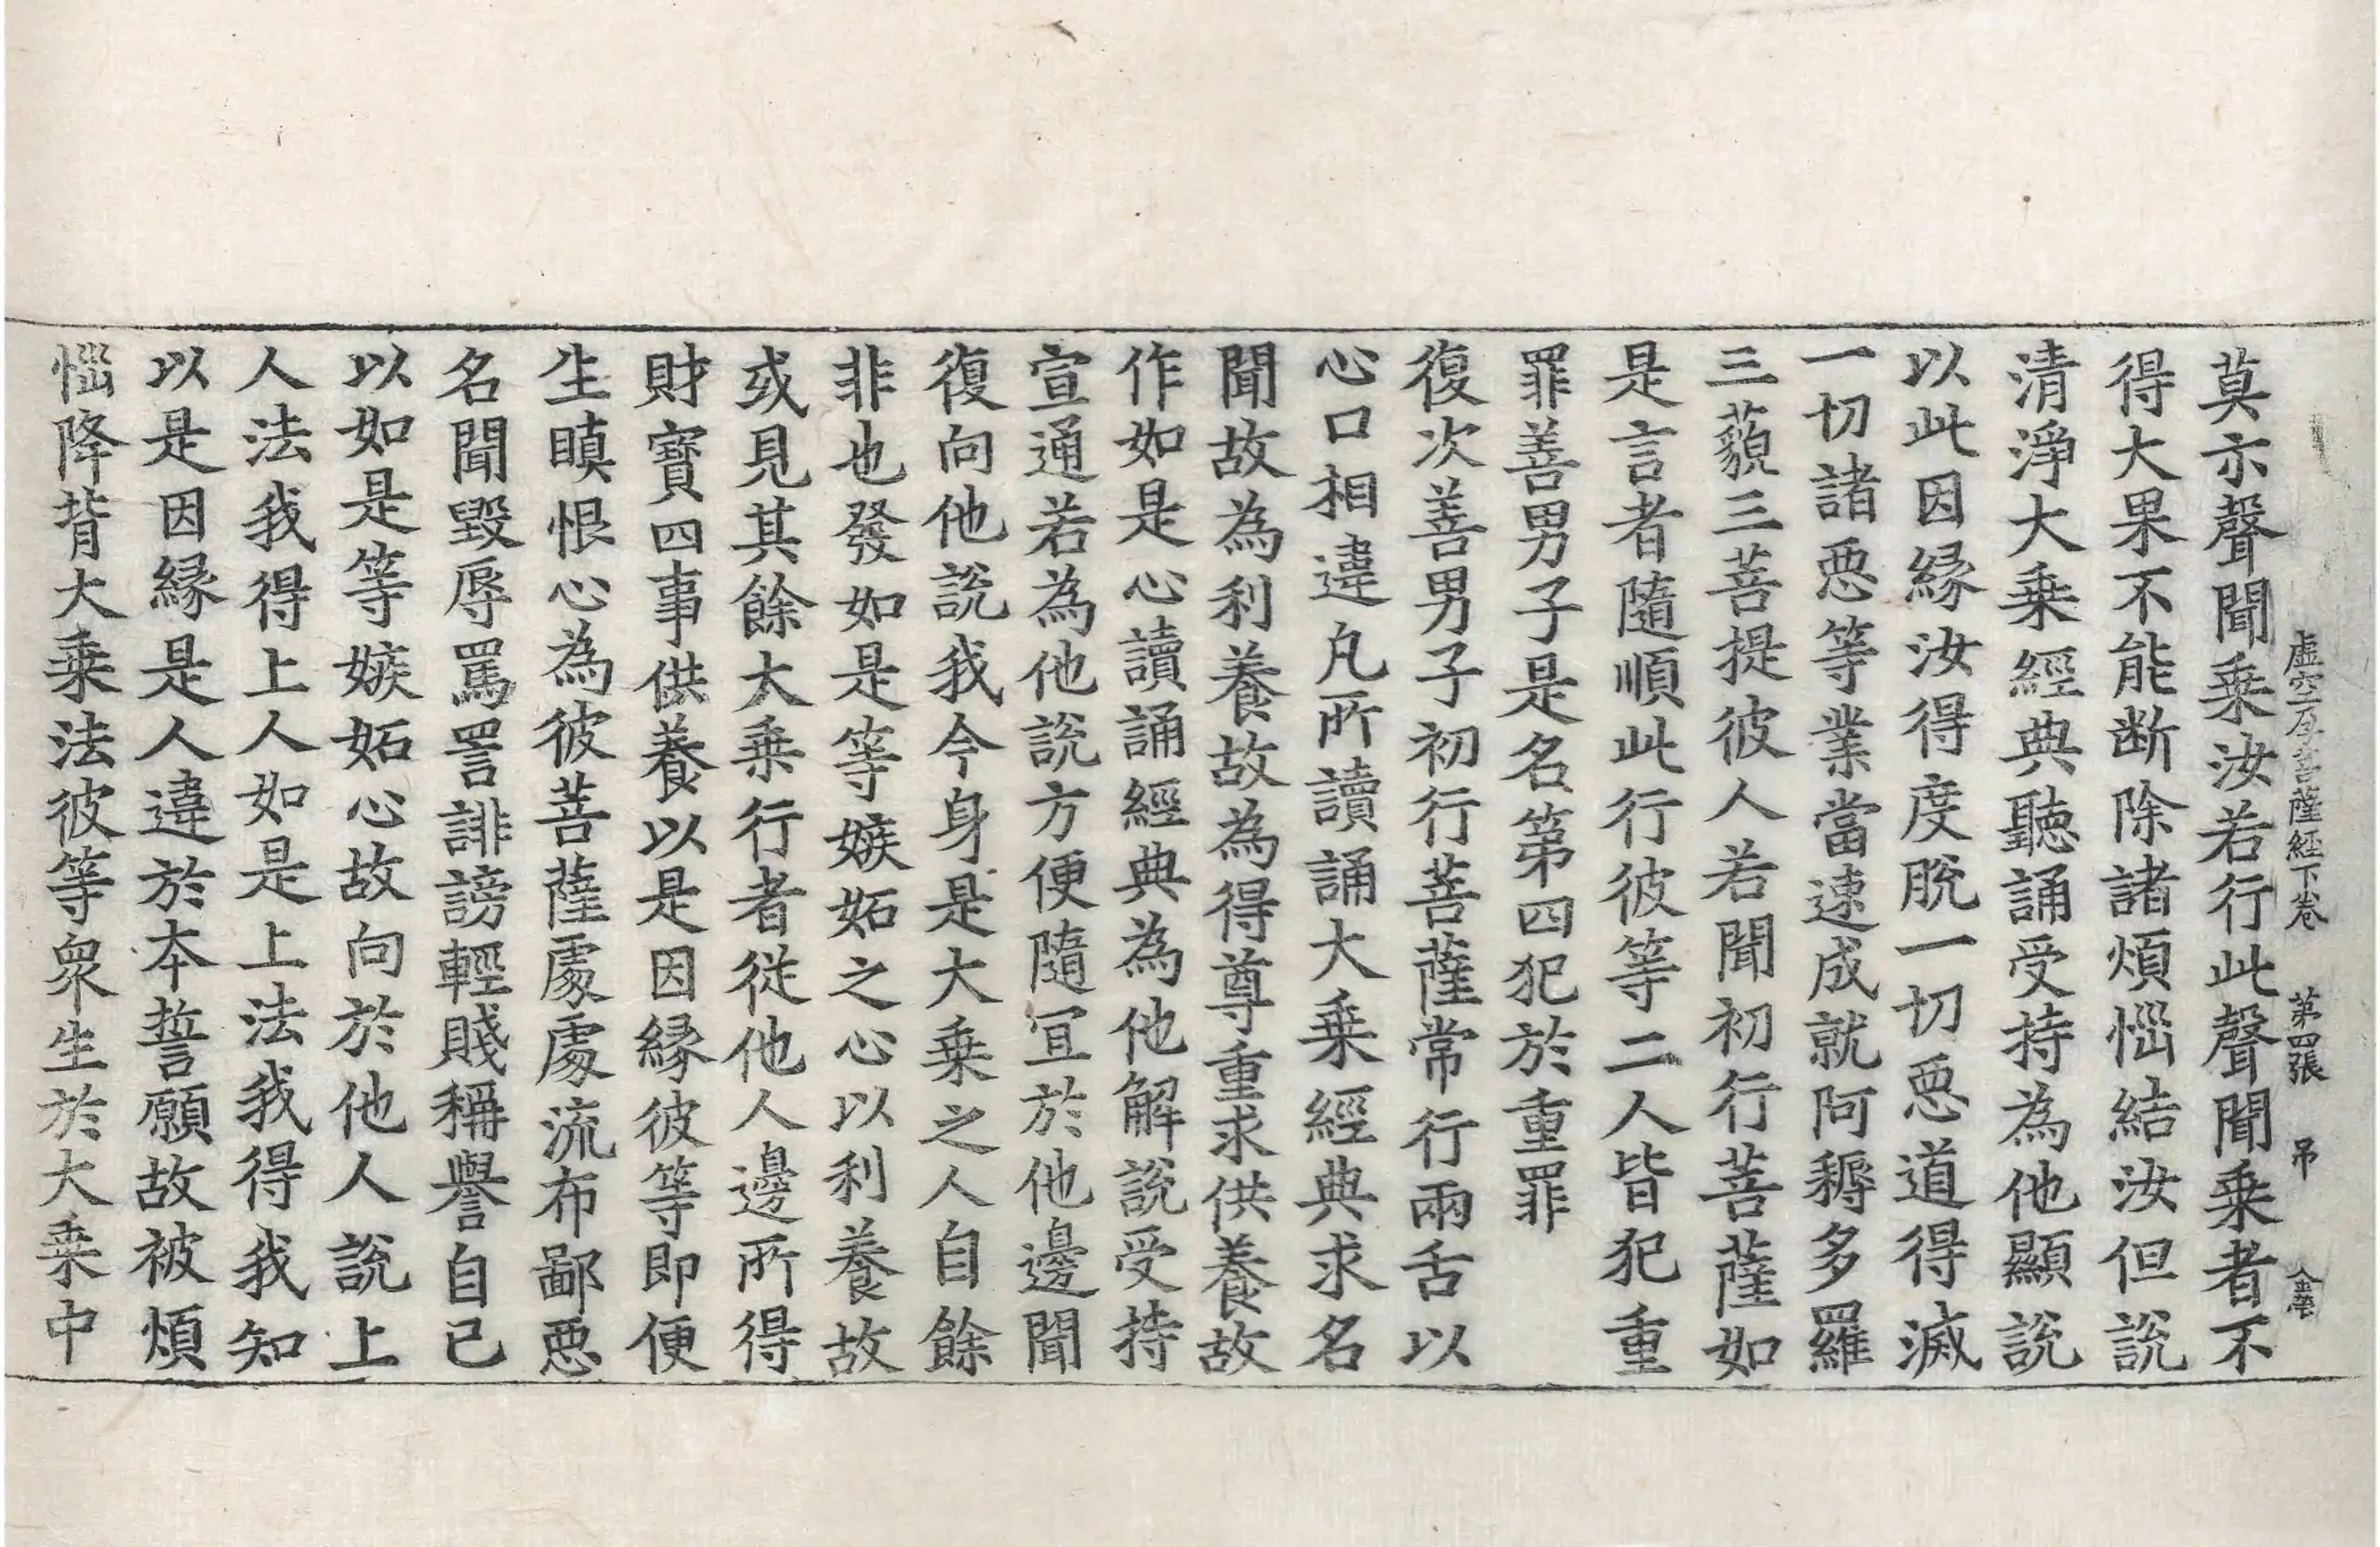 虛空孕菩薩經下卷　第四張　吊　金甫
莫示聲聞乗汝若行此聲聞乗者不
得大果不能断除諸煩惱結汝但說
清淨大乗經典聽誦受持為他顯說
以此因縁汝得度脫一切惡道得滅
一切諸惡等業當速成就阿耨多羅
三藐三菩提彼人若聞初行菩薩如
是言者隨順此行彼等二人皆犯重
罪善男子是名第四犯於重罪
復次善男子初行菩薩常行兩舌以
心口相違凡所讀誦大乗經典求名
聞故為利養故為得尊重求供養故
作如是心讀誦經典為他解說受持
宣通若為他說方便隨宜於他邊聞
復向他說我今身是大乗之人自餘
非也發如是等嫉妬之心以利養故
或見其餘大乗行者従他人邊所得
財寶四事供養以是因縁彼等即便
生瞋恨心為彼菩薩處處流布鄙惡
名聞毀辱罵詈誹謗輕賤稱譽自己
以如是等嫉妬心故向於他人說上
人法我得上人如是上法我得我知
以是因縁是人違於本誓願故被煩
惱降背大乗法彼等衆生於大乗中